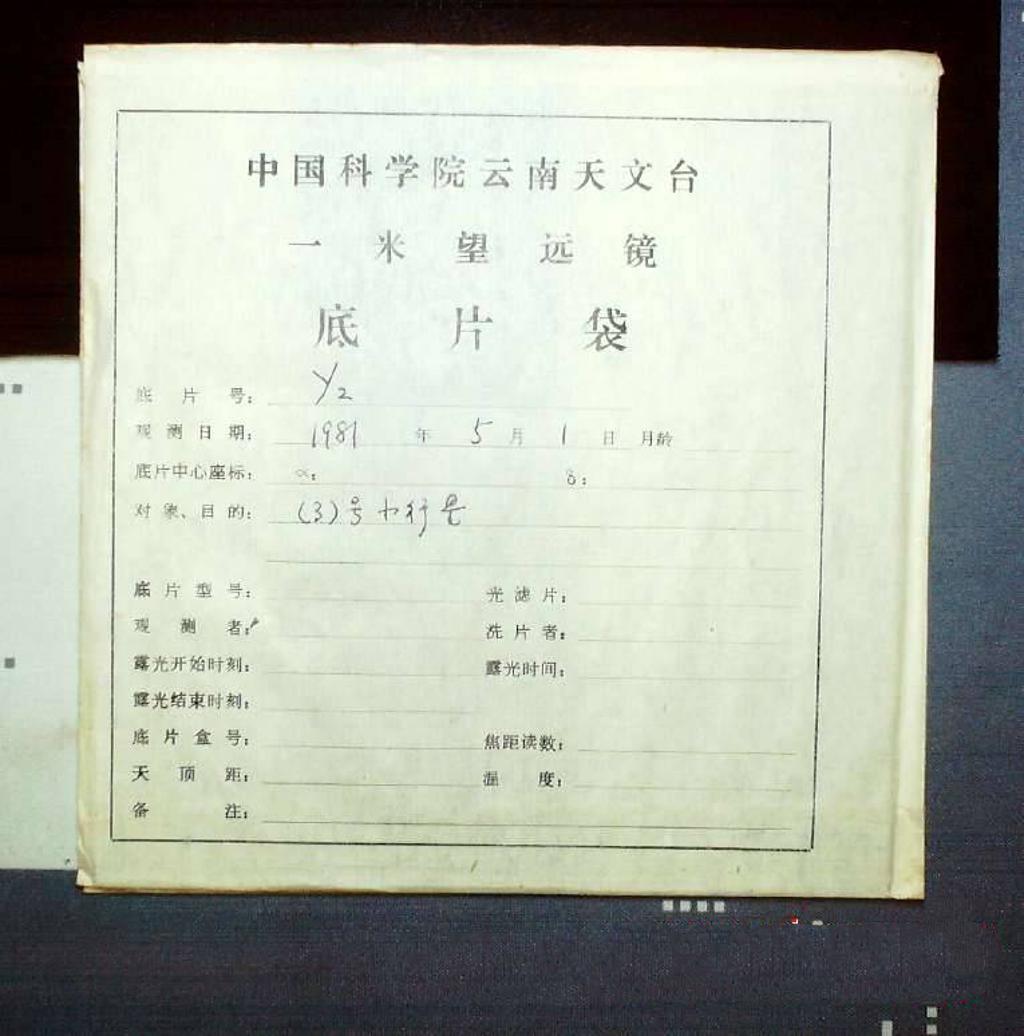 中国科学院云南天文台
一米望远镜
底片袋
底片号： Y2
观测日期： 1981 年 5 月 1 日 月龄
底片中心座标： α： δ：
对象、目的： (3)号小行星
底片型号： 光滤片：
观测者： 冼片者：
露光开始时刻： 露光时间：
露光结束时刻：
底片盒号： 焦距读数：
天顶距： 温度：
备注：